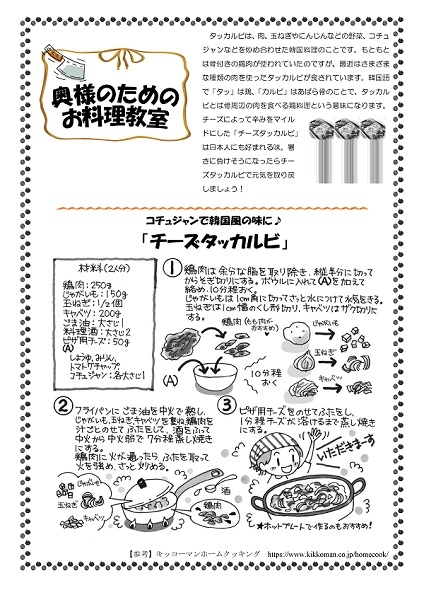 奥様のための
お料理教室
タッカルビは、肉、玉ねぎやにんじんなどの野菜、コチュ
ジャンなどを炒め合わせた韓国料理のことです。もともと
は骨付きの鶏肉が使われていたのですが、最近はさまざま
な種類の肉を使ったタッカルビが食されています。韓国語
で「タッ」は鶏、「カルビ」はあばら骨のことで、タッカル
ビとは骨周辺の肉を食べる鶏料理という意味になります。
チーズによって辛みをマイル
ドにした「チーズタッカルビ」
は日本人にも好まれる味。暑
さに負けそうになったらチー
ズタッカルビで元気を取り戻
しましょう！
コチュジャンで韓国風の味に♪
「チーズタッカルビ」
材料(2人分)
鶏肉：250g
じゃがいも：150g
玉ねぎ：1/2個
キャベツ：200g
ごま油：大さじ1
料理酒：大さじ2
ピザ用チーズ：50g
(A)
しょうゆ、みりん、
トマトケチャップ、
コチュジャン：各大さじ1
① 鶏肉は余分な脂を取り除き、縦半分に切って
からそぎ切りにする。ボウルに入れて(A)を加えて
絡め、10分程おく。
じゃがいもは1cm角に切ってさっと水につけて水気をきる。
玉ねぎは1cm幅のくし形切り、キャベツはザク切りに
する。
鶏肉(もも肉が
おすすめ♥)
(A)
10分程
おく
じゃがいも
玉ねぎ
キャベツ
② フライパンにごま油を中火で熱し、
じゃがいも、玉ねぎ、キャベツを重ね、鶏肉を
汁ごとのせてふたをして、酒をふって
中火から中火弱で7分程蒸し焼き
にする。
鶏肉に火が通ったら、ふたを取って
火を強め、さっと炒める。
じゃがいも
玉ねぎ
キャベツ
酒
鶏肉
③ ピザ用チーズをのせてふたをし、
1分程チーズが溶けるまで蒸し焼き
にする。
いただきまーす
★ホットプレートで作るのもおすすめ！
【参考】キッコーマンホームクッキング　https://www.kikkoman.co.jp/homecook/